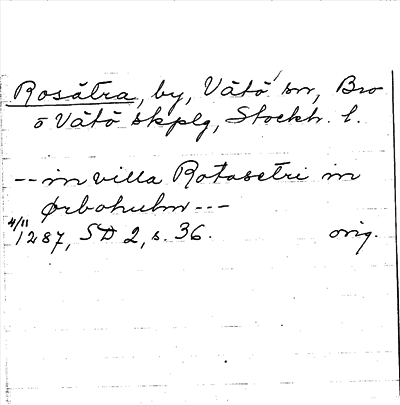 Rosätra, by, Vätö sn, Bro
o Vätö skplg, Stockh. l.
-- in villa Rotasætri in
Ørbohulm ---
4/11 1287, SD 2, s. 36. orig.